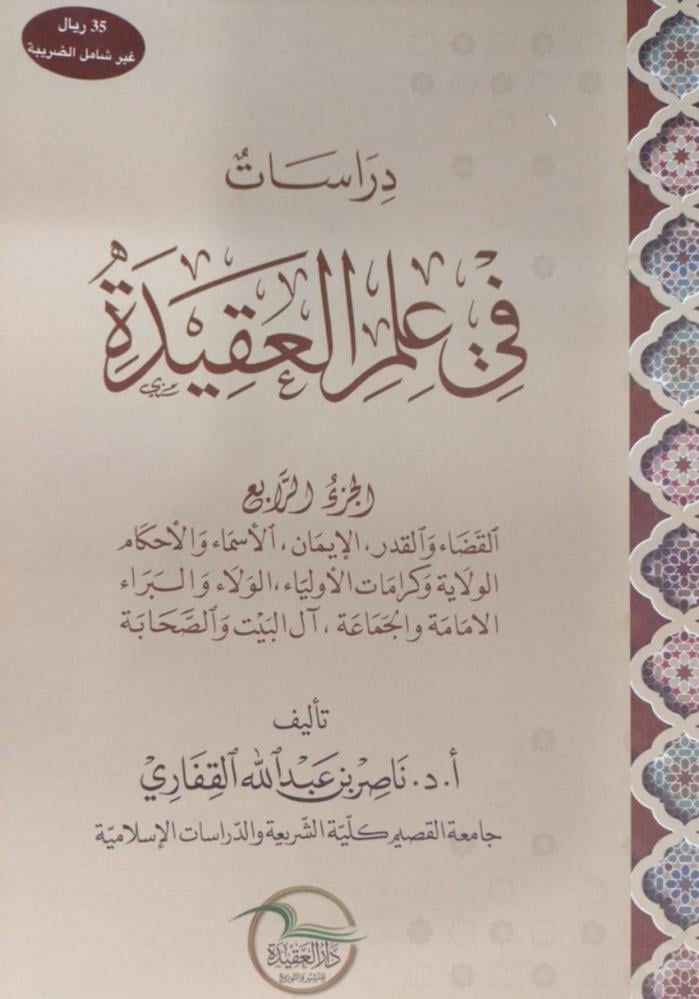 35 ريال
غير شامل الضريبة
دِرَاسَاتٌ
فِيْ عِلِمِ العَقِيْدَةُ
الجزءُ الرَّابع
القَضَاء وَالقدر، الإيمَان، الأسمَاء وَالأحكَام
الولاية وَكرامَات الأوليَاء، الوَلَاء وَالبَرَاء
الامَامَة والجَمَاعَة، آل البَيْت وَالصَّحَابَة
تأليف
أ. د. نَاصِر بن عَبْد الله القِفَارِيْ
جامعة القصيم كليّة الشريعة والدّراسات الإسلاميّة
دَارُ العَقِيْدَة
للنشر والتوزيع